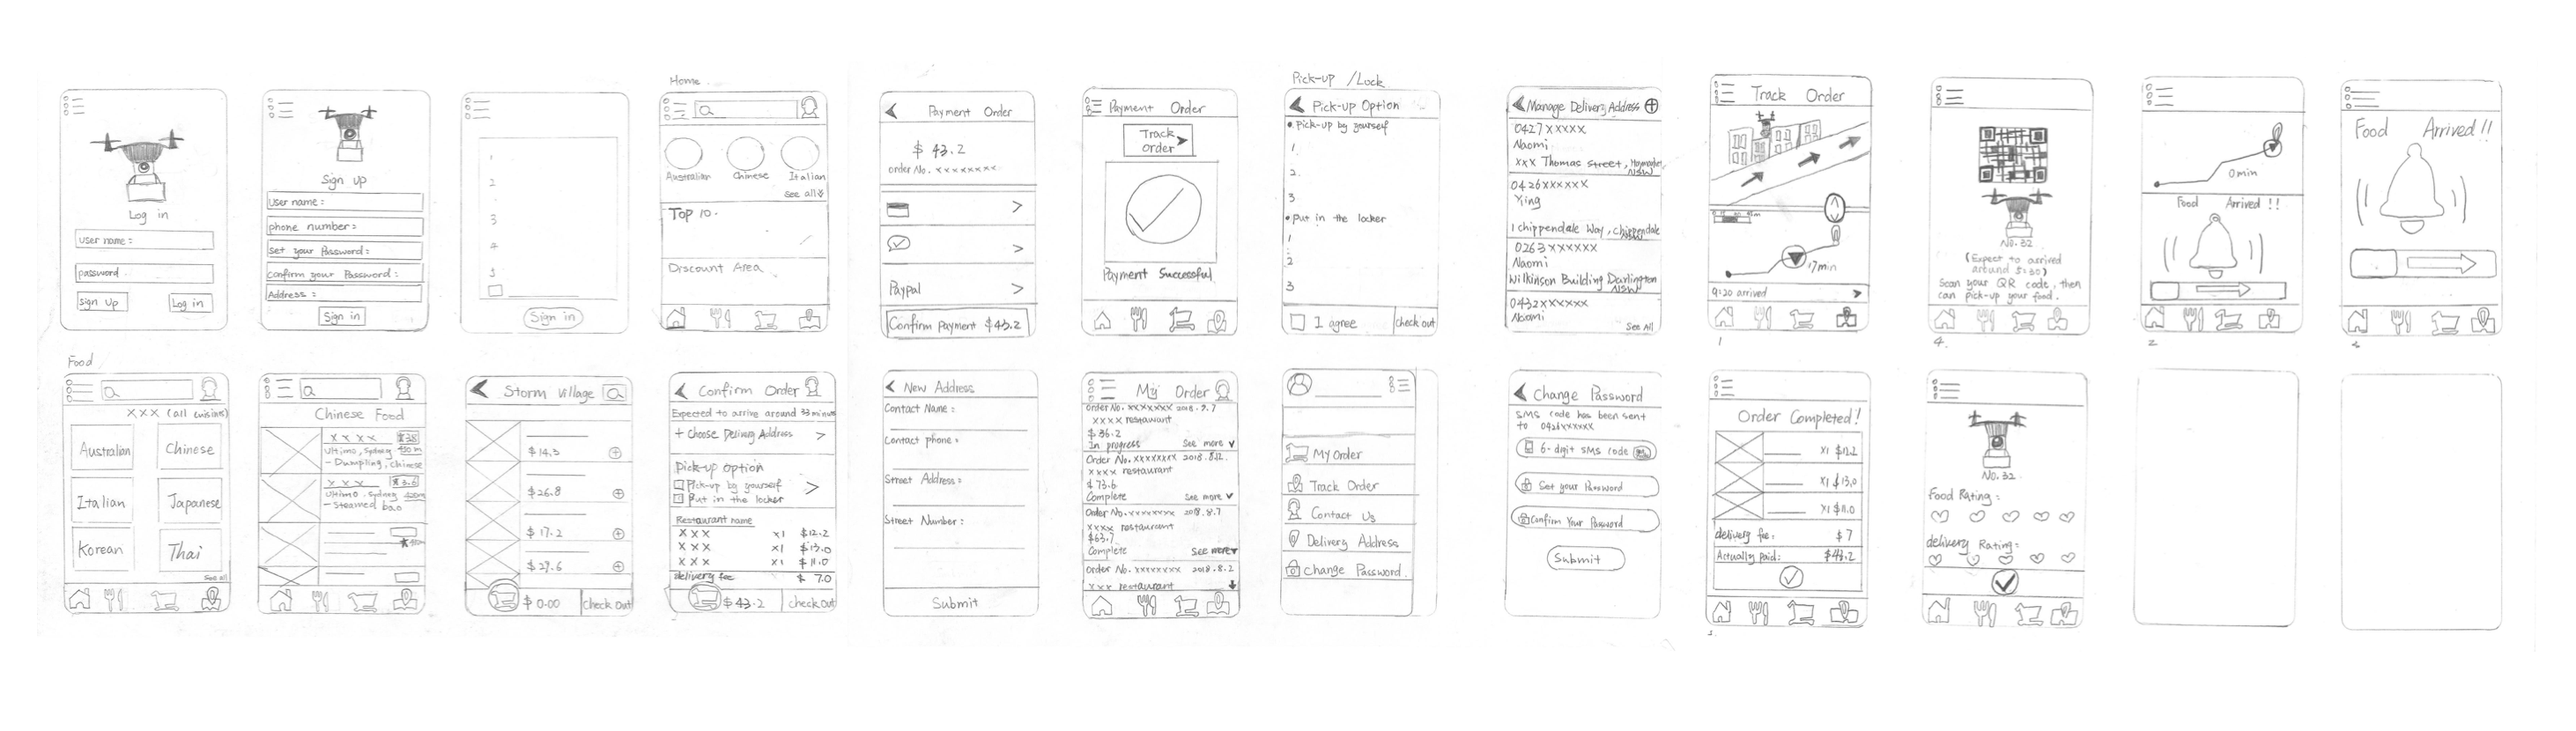 Log in
User name :
password
Sign Up
Log in
Sign up
User name :
phone number :
set your Password :
confirm your Password :
Address :
Sign in
1
2
3
4
5
Sign in
Home
Australian
Chinese
Italian
see all
Top 10.
Discount Area
Payment Order
$ 43.2
order No. xxxxxxxx
Paypal
Confirm Payment $43.2
Payment Order
Track
Order
Payment Successful
Pick-up / Lock
Pick-up Option
• Pick-up by yourself
1
2
3
• put in the locker
1
2
3
I agree
check out
Manage Delivery Address
0427xxxxx
Naomi
xxx Thomas Street, Haymarket
NSW
0426xxxxxx
Ying
1 chippendale Way, Chippendale
NSW
0263xxxxxx
Naomi
Wilkinson Building Darlington
NSW
0432xxxxxx
Naomi
See All
Track Order
17min
9:20 arrived
1
No.32
(Expect to arrived
around 5:30)
Scan your QR code, then
can pick-up your food.
4.
0min
Food Arrived !!
2
Food Arrived !!
3
Food
XXX (all cuisines)
Australian
Chinese
Italian
Japanese
Korean
Thai
See all
Chinese Food
x x x x
Ultimo, Sydney
- Dumpling, chinese
x x x
Ultimo, Sydney
- Steamed bao
Storm Village
$14.3
$26.8
$17.2
$27.6
$ 0.00
check Out
Confirm Order
Expected to arrive around 33 minutes
+ Choose Delivery Address
Pick-up Option
Pick-up by yourself
Put in the locker
Restaurant name
X X X x1 $12.2
X X X x1 $13.0
X X X x1 $11.0
delivery fee $ 7.0
$43.2
check out
New Address
Contact Name :
Contact phone :
Street Address :
Street Number :
Submit
My Order
Order No. xxxxxxx 2018.9.7
xxxx restaurant
$36.2
In progress See more
Order No. xxxxxxxx
xxxx restaurant
$73.6
Complete See more
Order No. xxxxxxxx 2018.8.7
xxxx restaurant
$63.7
Complete See more
Order No. xxxxxxx 2018.8.2
xxx restaurant
My Order
Track Order
Contact Us
Delivery Address
Change Password.
Change Password
SMS code has been sent
to 0426xxxxxx
6-digit SMS code
Set your Password
Confirm Your Password
Submit
Order Completed!
x1 $12.2
x1 $13.0
x1 $11.0
delivery fee: $7
Actually paid: $43.2
No.32
Food Rating :
delivery Rating :